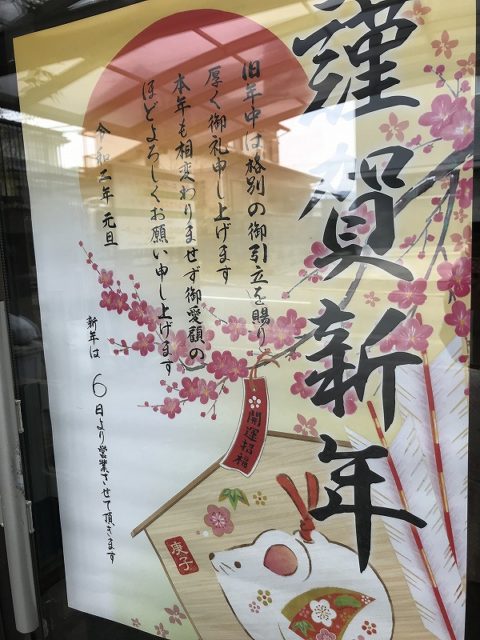 謹賀新年
旧年中は格別の御引立を賜り
厚く御礼申し上げます
本年も相変わりませず御愛顧の
ほどよろしくお願い申し上げます
令和二年 元旦
新年は 6日より営業させて頂きます
開運招福
庚子